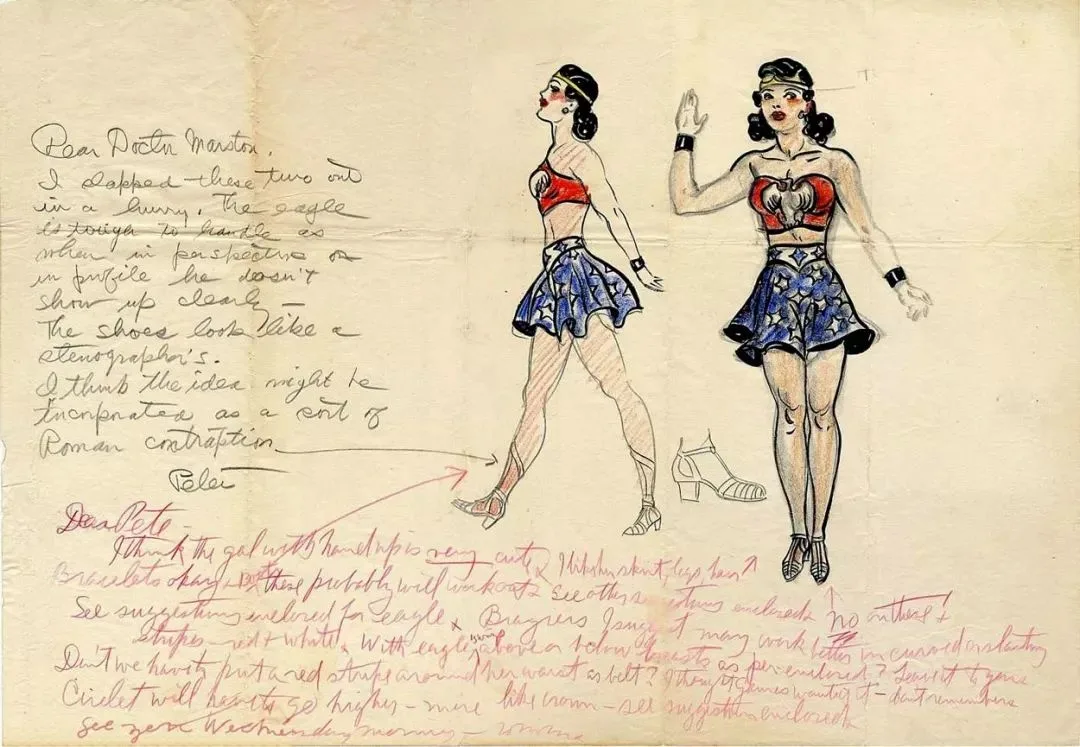 Dear Doctor Marston,
I slapped these two out
in a hurry. The eagle
is tough to handle as
when in perspective or
in profile he doesn't
show up clearly —
The shoes look like a
stenographer's.
I think the idea might be
incorporated as a sort of
Roman contraption
Peter
Dear Pete —
I think the gal with hand up is very cute. I like her skirt, legs, hair
Bracelets okay + boots these probably will work out. See other suggestions enclosed. No on these +
See suggestions enclosed for eagle. Brassiers I suggest may work better in curved or slanting
stripes — red + white. With eagle's wings above or below breasts as per enclosed? Leave it to you.
Don't we have to put a red stripe around her waist as belt? I thought Gaines wanted it — don't remember
Circlet will have to go higher — more like crown — see suggestions enclosed
See you Wednesday morning —